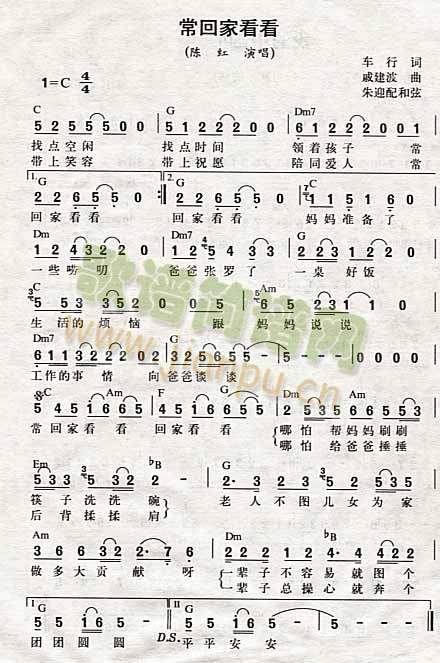 常回家看看
(陈 红 演唱)
1=C 4/4
车 行 词
戚建波 曲
朱迎配和弦
C G Dm7
5 2 5 5 5 0 0 | 5 1 2 2 2 0 0 | 6 1 2 2 2 0 0 1
找点空闲 找点时间 领着孩子 常
带上笑容 带上祝愿 陪同爱人 常
1. G 2. G C
2 2 6 5 5 - :‖ 2 2 6 5 5 - | 1 1 5 1 6 0
回家看看 回家看看 妈妈准备了
Dm Dm7 G
1 2 4 3 2 2 0 | 2 5 4 3 3 | 5 1 3 2 -
一些唠叨 爸爸张罗了 一桌好饭
C Am
5 5 3 3 5 2 0 5 6 5 2 3 1 1 0
生活的烦恼 跟妈妈说说
Dm7 G
6 1 1 3 2 2 2 0 2 3 2 5 6 5 5 - | 5 - - 0
工作的事情 向爸爸谈谈
C Am F G Dm
5 4 5 1 6 6 5 4 5 1 6 6 5 - 2 5 3 5 6 6 5 5 3
常回家看看 回家看看 哪怕帮妈妈刷刷
哪怕给爸爸捶捶
Em bB G
筷子洗洗碗 老人不图儿女为家
后背揉揉肩
Am Dm
3 6 6 3 2 2· 7 6
做多大贡献呀 一辈子不容易就图个
一辈子总操心就奔个
I G II G
团团圆圆 D.S. 平平安安
歌谱简谱网
www.jianpu.cn